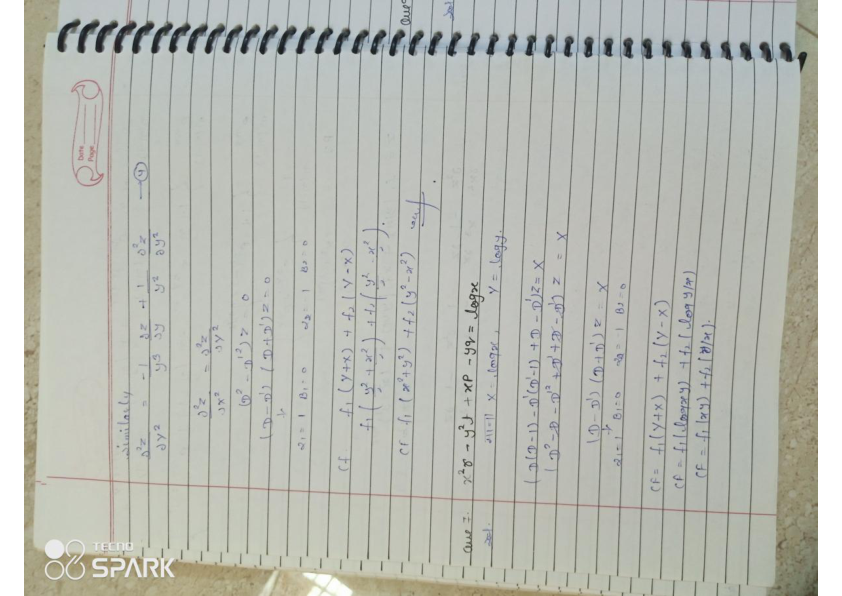 Date
Page
Similarly
∂²z/∂y² = -1/y³ ∂z/∂y + 1/y² ∂²z/∂y² —④
∂²z/∂x² = ∂²z/∂y²
(D² - D'²) z = 0
(D - D') (D + D') z = 0
a₁ = 1 B₁ = 0 a₂ = 1 B₂ = 0
CF f₁ (Y+X) + f₂ (Y-X)
f₁ (y²/2 + x²/2) + f₂ (y²/2 - x²/2).
CF f₁ (x²+y²) + f₂ (y²-x²)
Que 7. x²r - y²t + xP - yq = logx
sol. X = logx, Y = logy.
(D(D-1) - D'(D'-1) + D - D')z = X
(D² - D - D'² + D' + D - D') z = X
(D - D') (D + D') z = X
a₁ = 1 B₁ = 0 a₂ = 1 B₂ = 0
CF = f₁ (Y+X) + f₂ (Y-X)
CF = f₁ (logxy) + f₂ (log y/x)
CF = f₁ (xy) + f₂ (y/x).
TECNO
SPARK